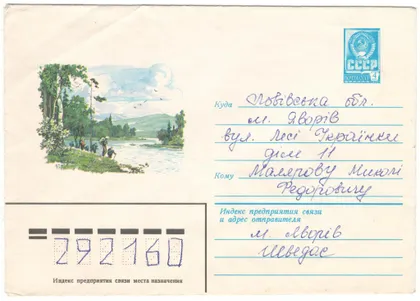 СССР
Куда Львівська обл.
м. Яворів
вул. Лесі Українки
дім 11
Кому Малярову Миколі
Федоровичу
Индекс предприятия связи
и адрес отправителя
м. Яворів
Шведас
292160
Индекс предприятия связи места назначения